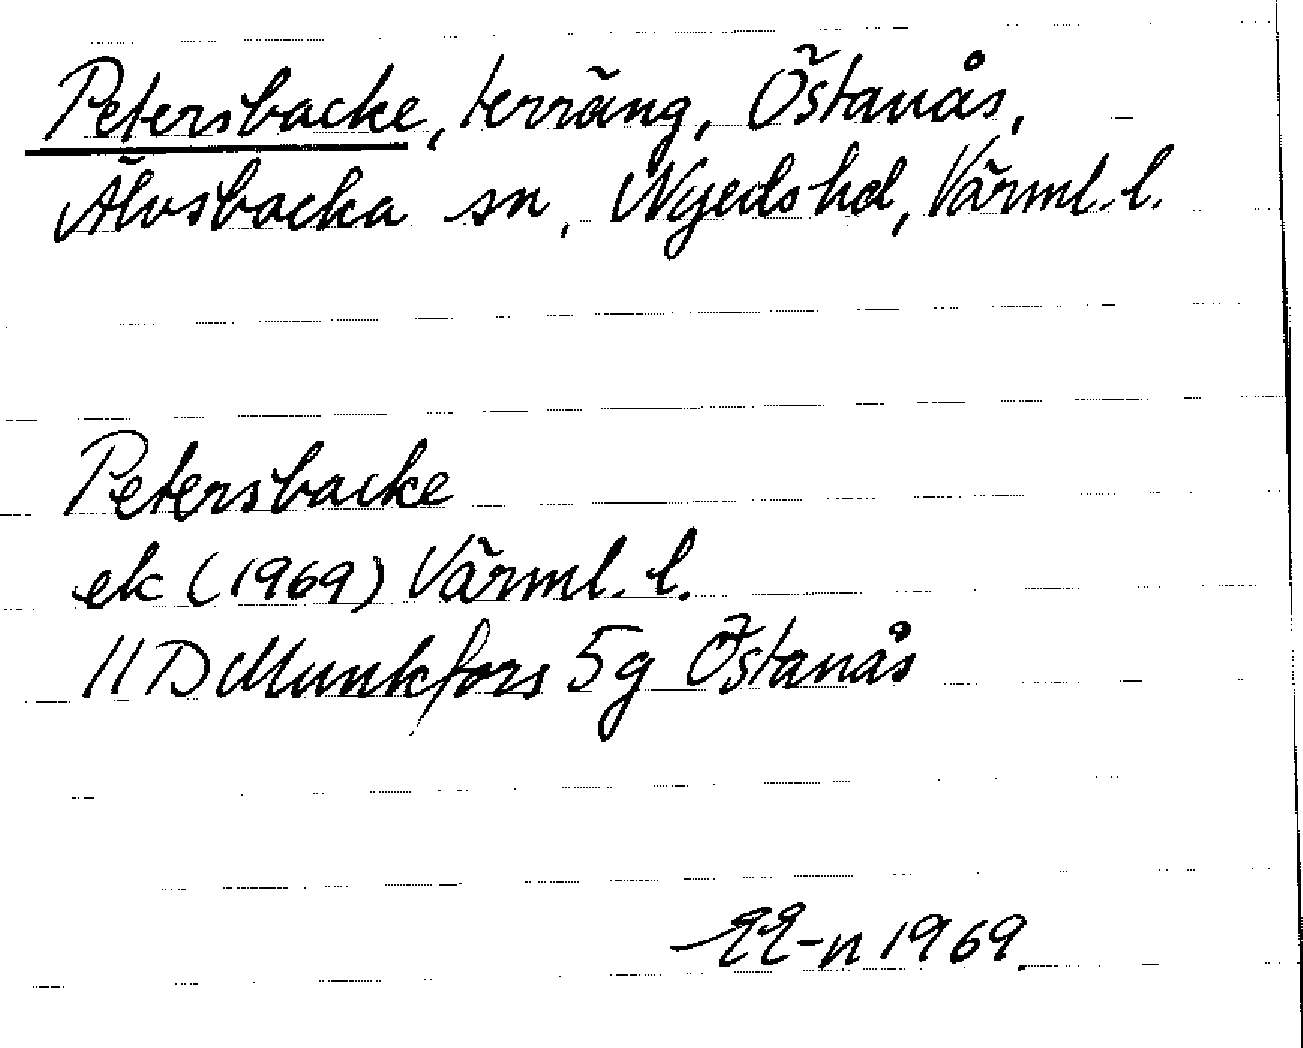 Petersbacke, terräng, Östanås,
Älvsbacka sn, Nyeds hd, Värml. l.
Petersbacke
ek (1969) Värml. l.
11 D Munkfors 5g Östanås
EE-n 1969.